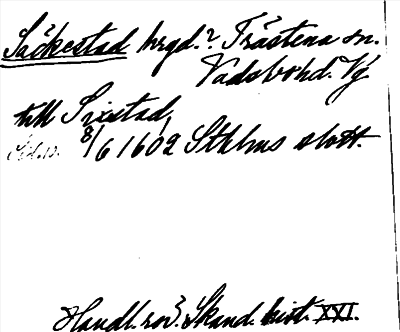 Säckestad hrgd.? Trästena sn.
Vadsbohd. Vg.
till Sixstad,
8/6 1602 Sthlms slott.
Handl. rör. Skand. hist. XXI.